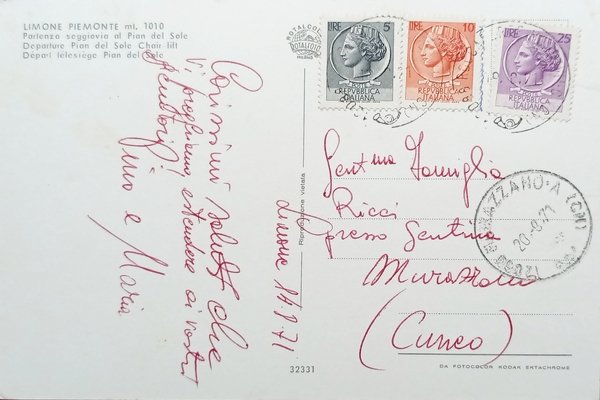 LIMONE PIEMONTE mt. 1010
Partenza seggiovia al Pian del Sole
Departure Pian del Sole Chair lift
Depart télésiege Pian del Sole
Carissimi saluti che
Vi preghiamo estendere ai vostri
genitori
Pino e Maria
Limone 14 8 71
ROTALCOLOR
ROTALFOTO
MILANO
Riproduzione vietata
LIRE 5
REPUBBLICA
ITALIANA
LIRE 10
REPUBBLICA
ITALIANA
LIRE 25
REPUBBLICA
ITALIANA
Gent.ma Famiglia
Ricci
presso Gentina
Murazzano
(Cuneo)
MURAZZANO A (CN)
20-8-71
32331
DA FOTOCOLOR KODAK EKTACHROME